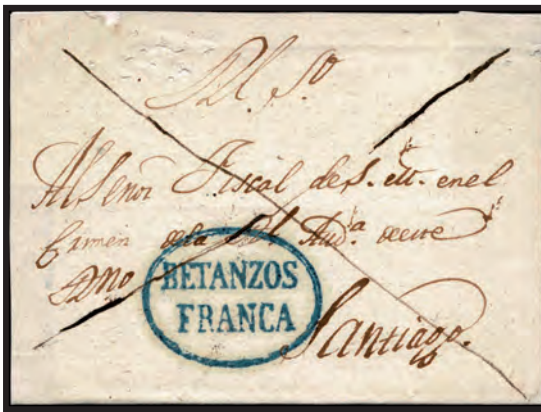 Rl. So
Al Señor Fiscal de S. M. en el
Crimen de la Rl. Auda. de este
Rno
BETANZOS
FRANCA
Santiago.